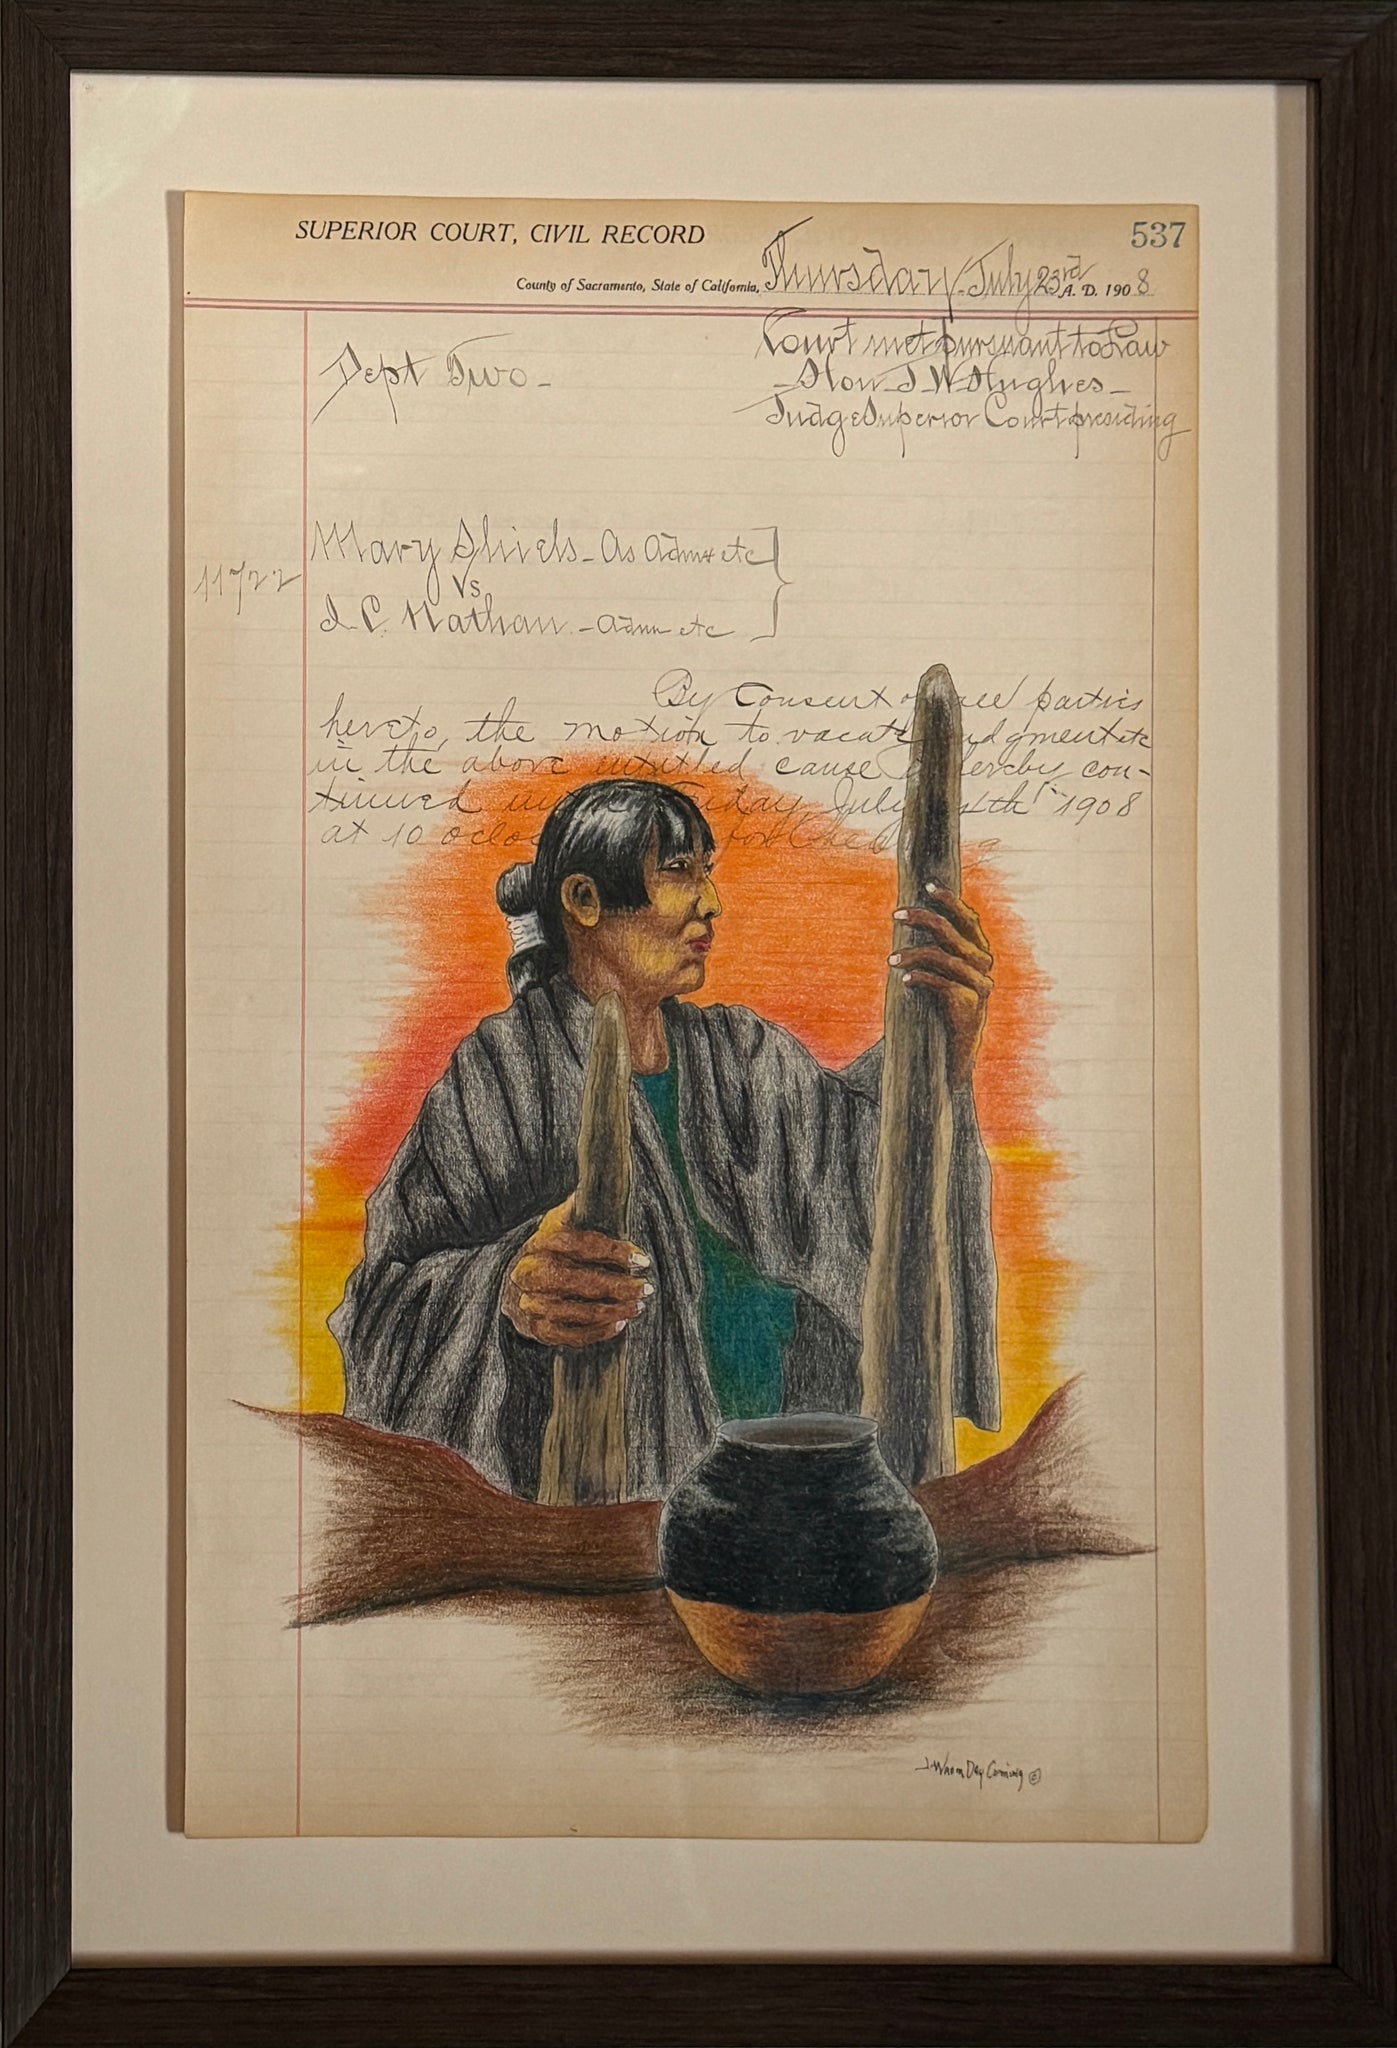 SUPERIOR COURT, CIVIL RECORD
537
County of Sacramento, State of California, Thursday July 23rd A. D. 1908
Dept Two -
Court met pursuant to Law
- Hon J W Hughes -
Judge Superior Court presiding
Mary Shiels - As Admx etc
11722
Vs
I. C. Nathan - Admr etc
By Consent of all parties
hereto, the motion to vacate judgment etc
in the above entitled cause is hereby con-
tinued until Friday, July 1908
at 10 oclock
J. When Day Coming ©